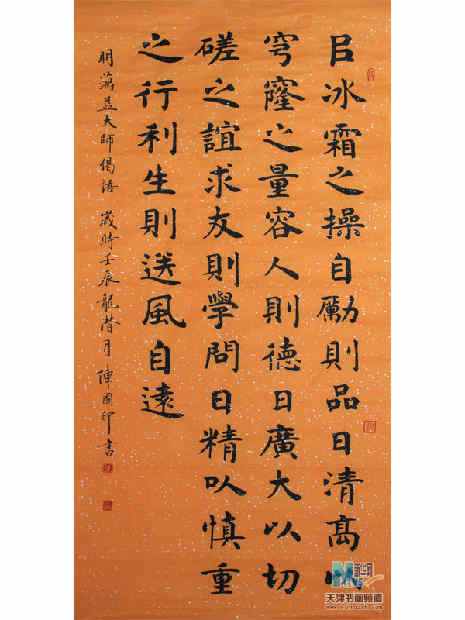 㠯冰霜之操自勵則品日清高以
穹窿之量容人則德日廣大以切
磋之誼求友則學問日精以慎重
之行利生則送風自遠
明蕅益大師偈語 歲時壬辰龍聲月 陳國印書
天津书画频道